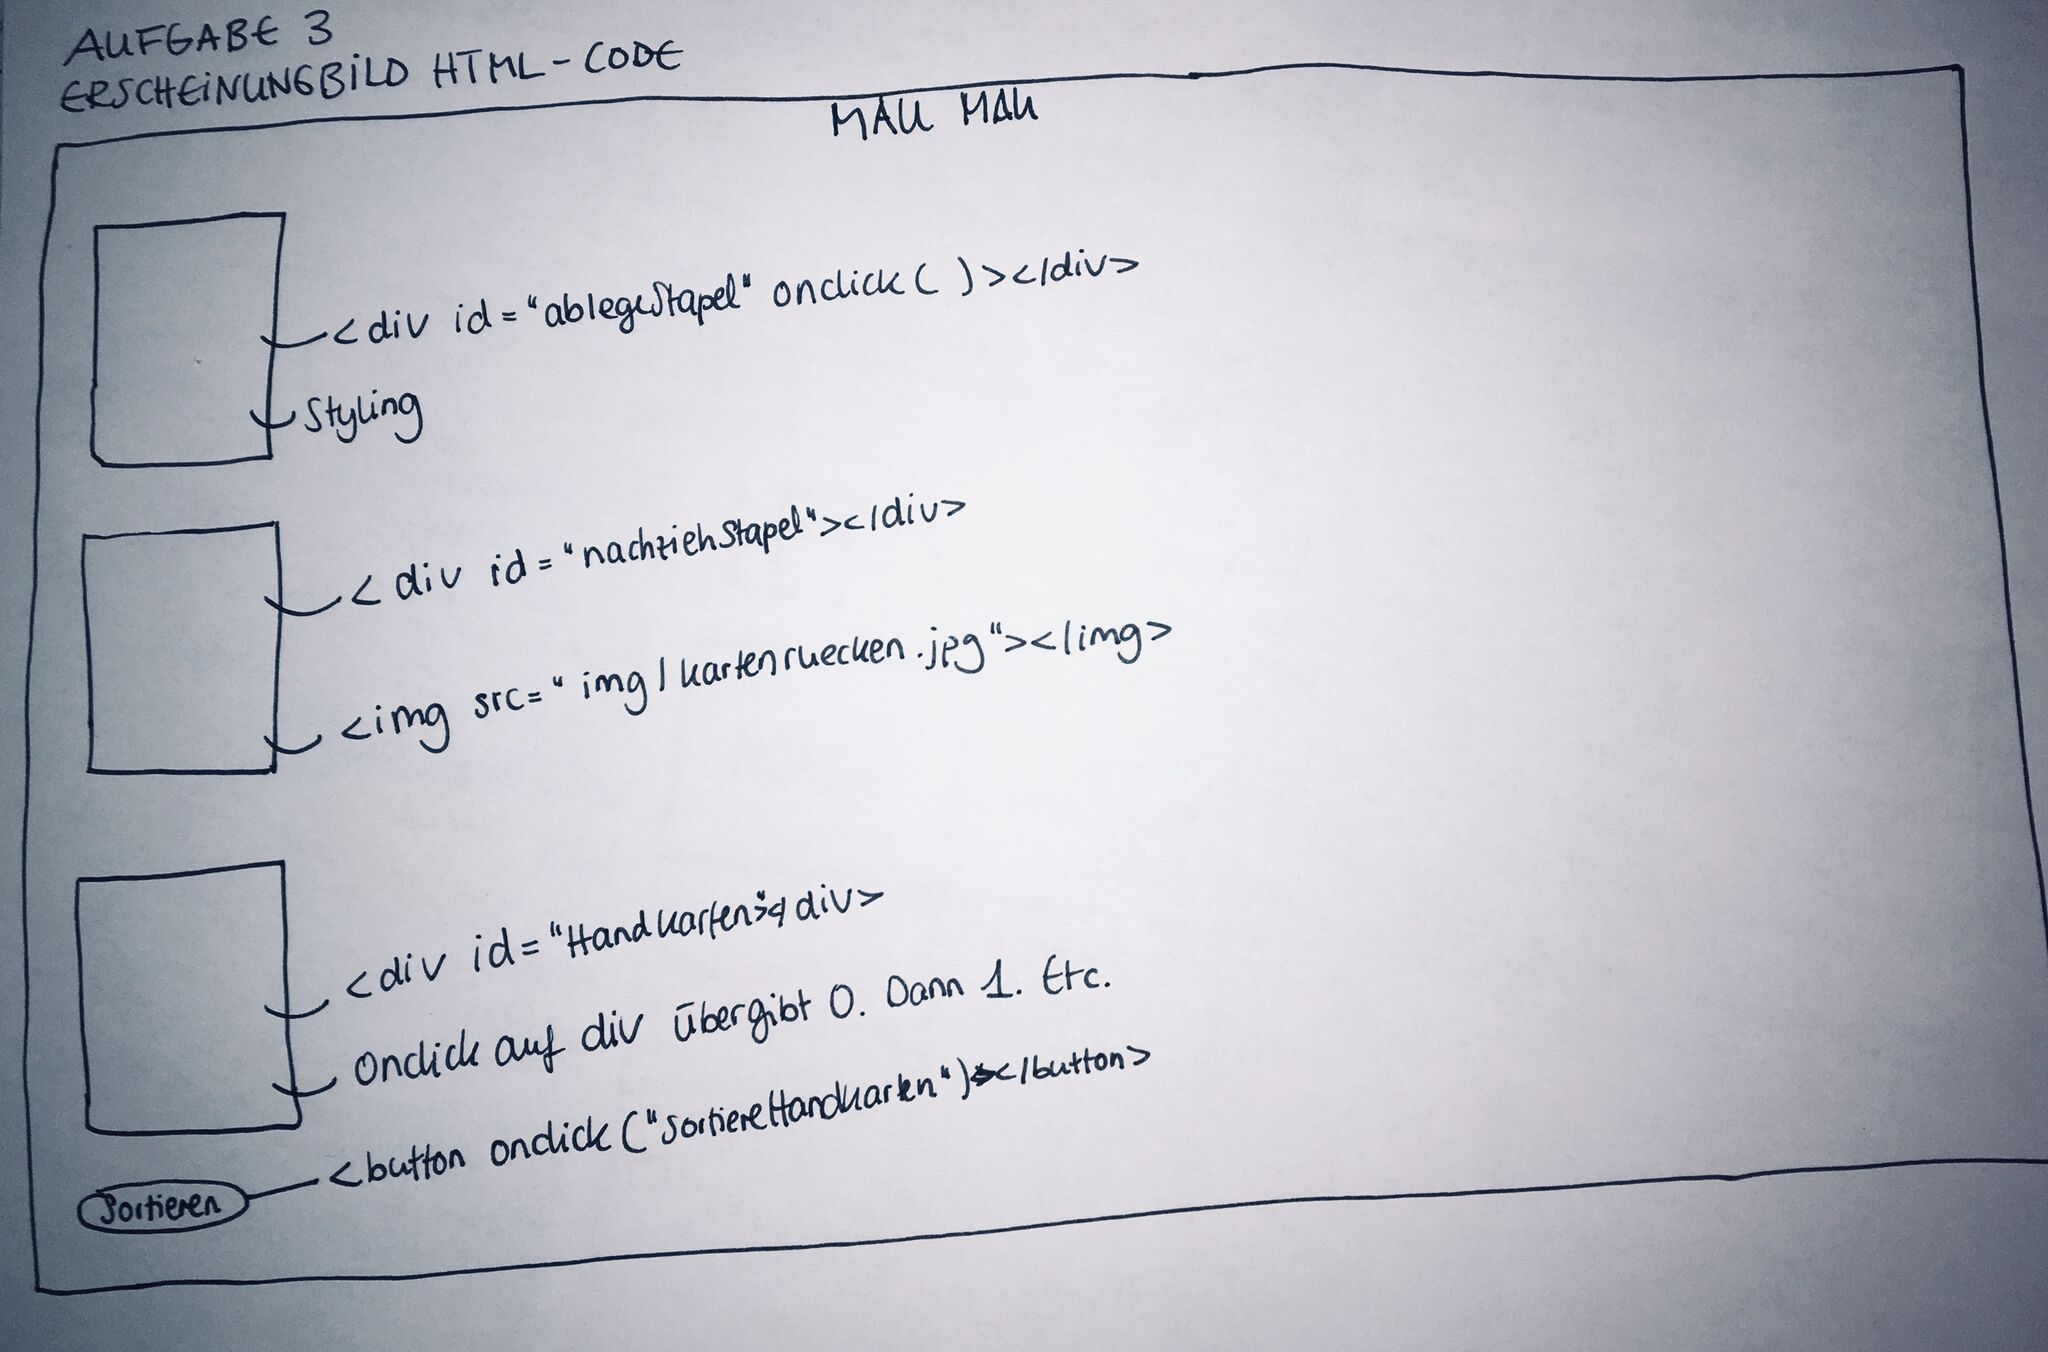 AUFGABE 3
ERSCHEINUNGBILD HTML-CODE
MAU MAU
<div id="ablegeStapel" onclick( )></div>
Styling
<div id="nachziehStapel"></div>
<img src="img/kartenruecken.jpg"></img>
<div id="Handkarten"></div>
Onclick auf div übergibt 0. Dann 1. Etc.
<button onclick("sortiereHandkarten")></button>
Sortieren